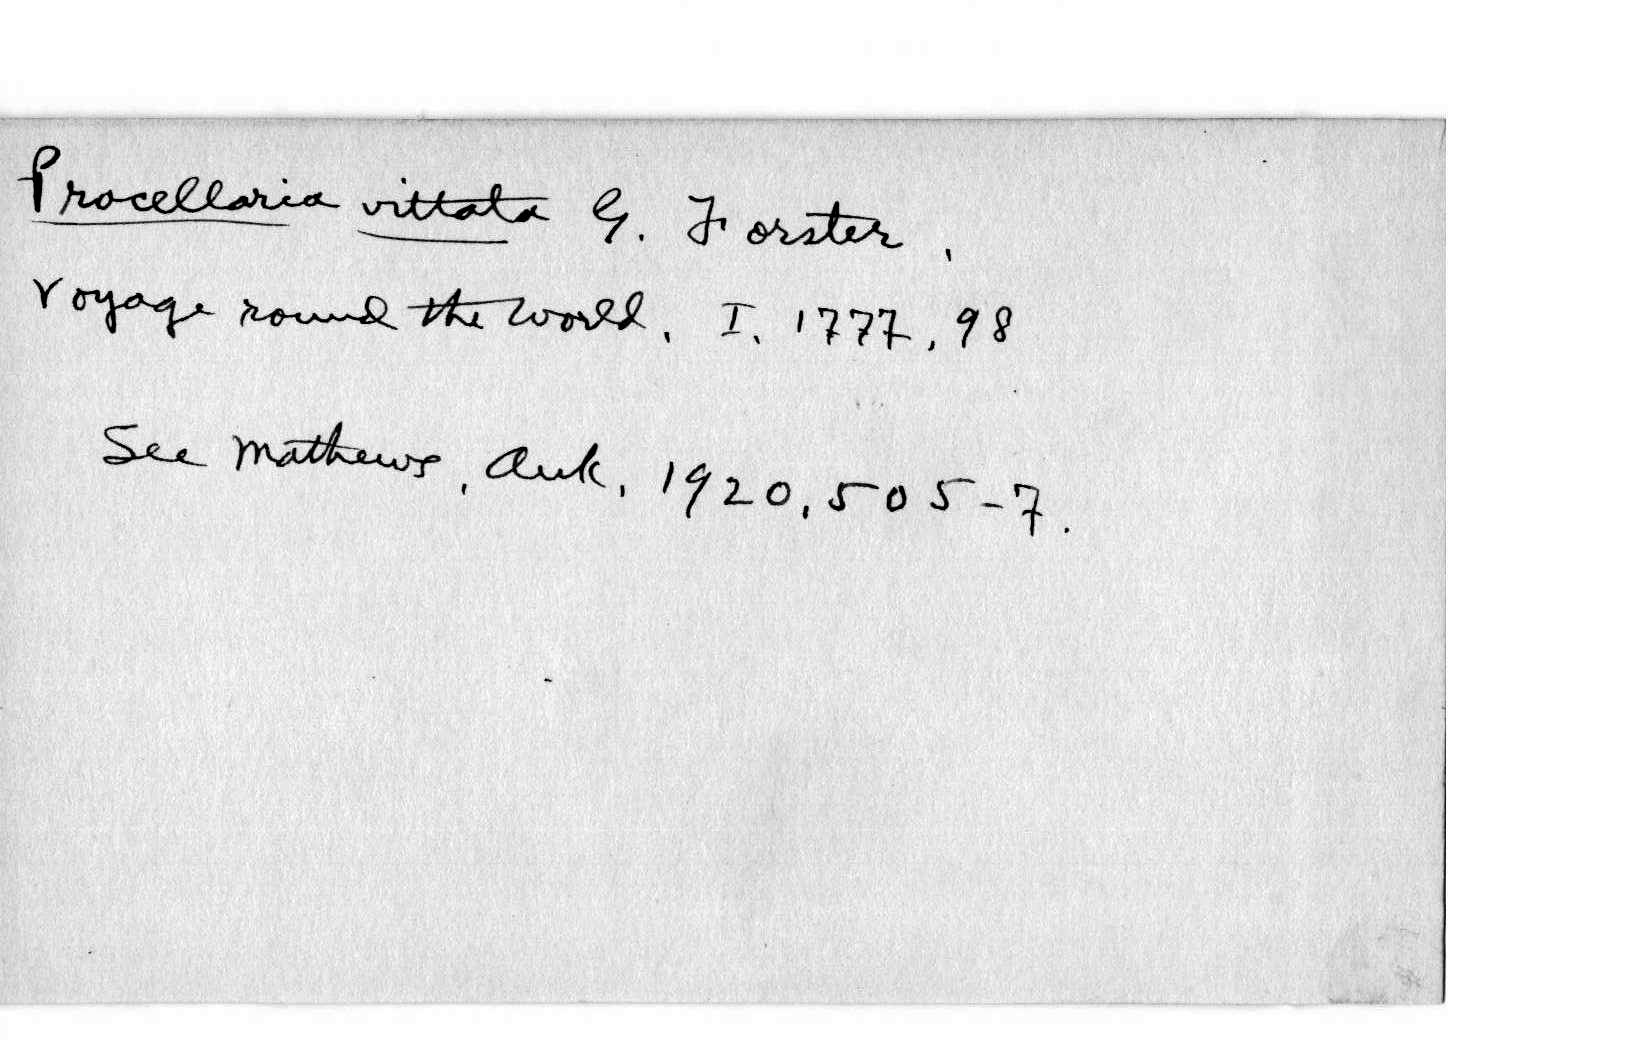 Procellaria vittata G. Forster,
Voyage round the World, I, 1777, 98
See Mathews, Auk, 1920, 505-7.